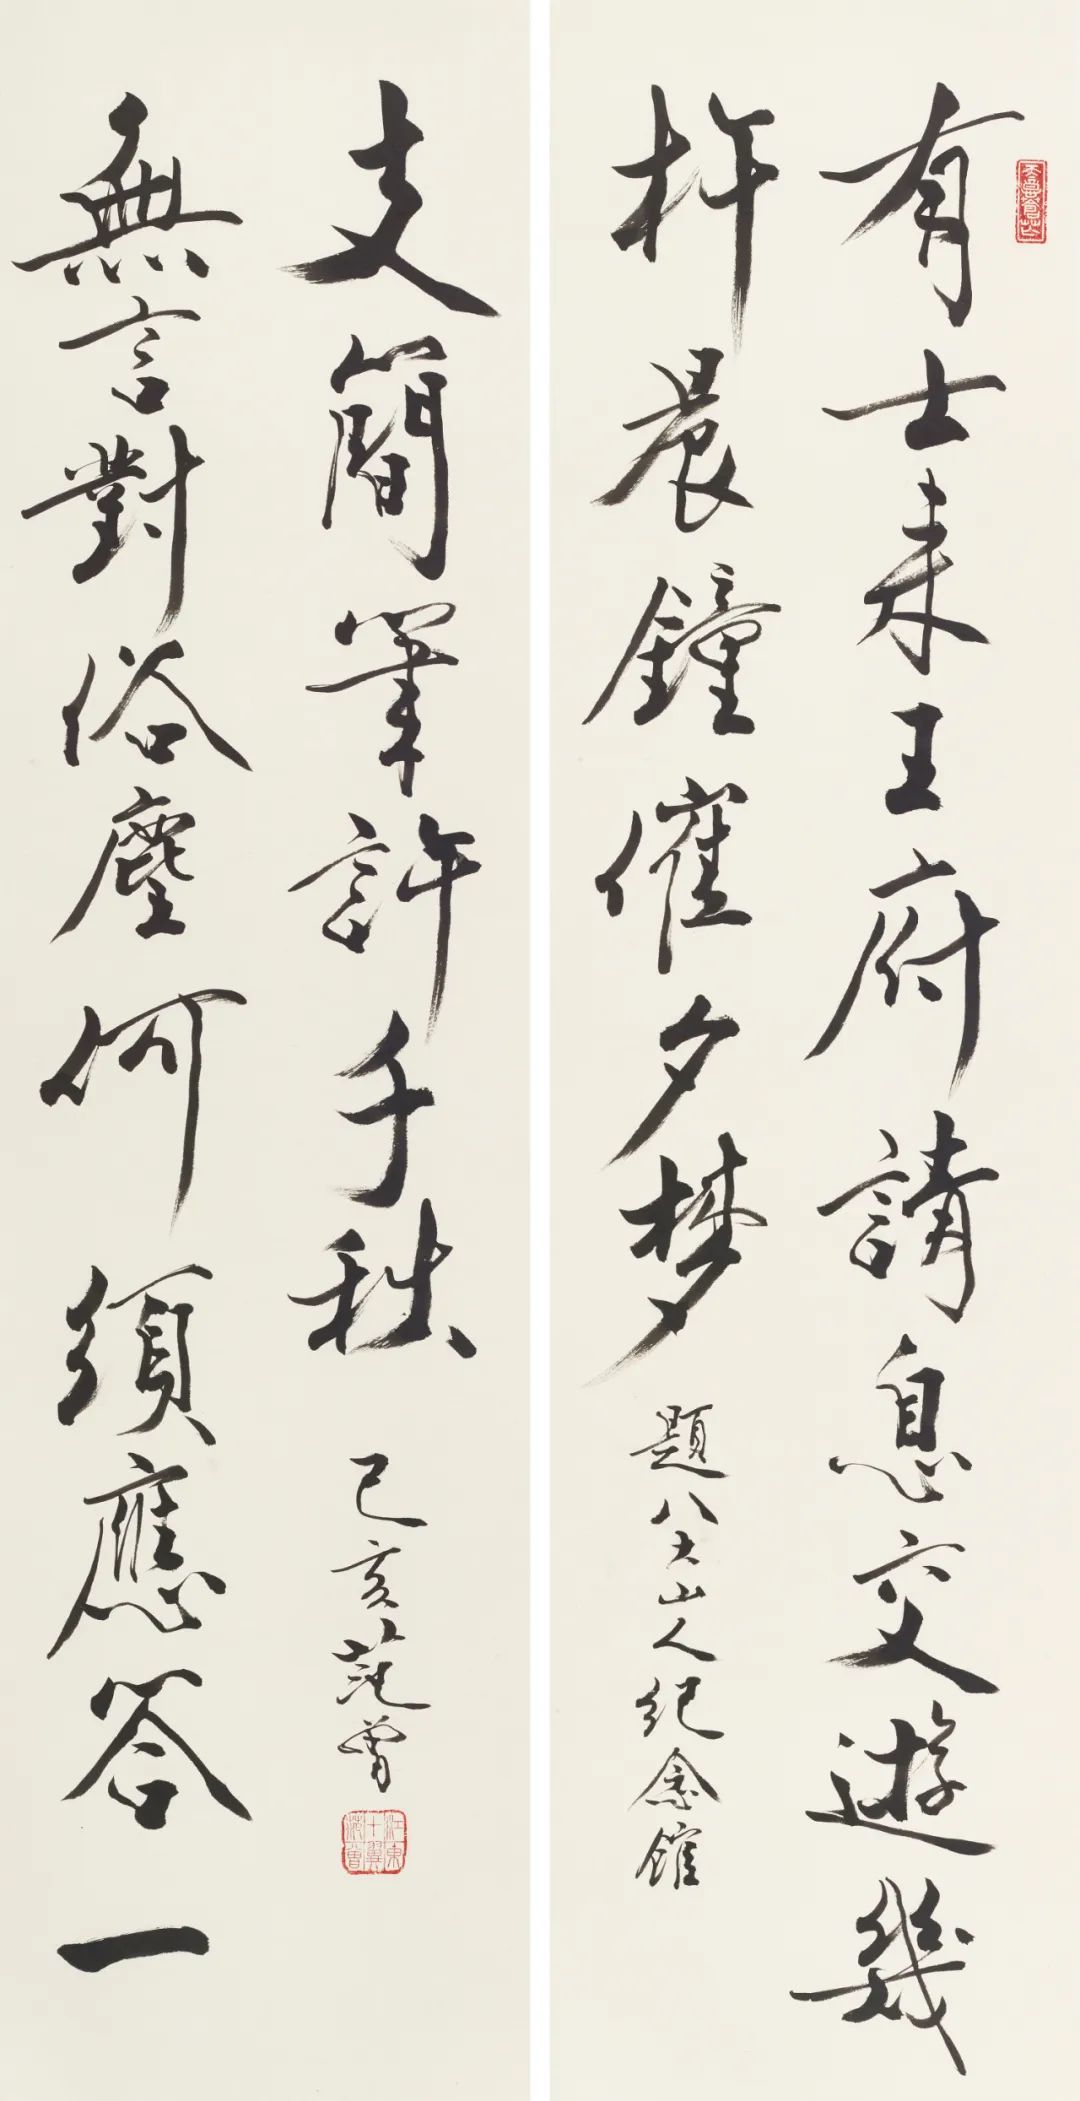 有士来王府請息交遊幾
杵晨鐘催夕梦
題八大山人紀念館
無言對俗塵何須應答一
支簡筆許千秋
己亥范曾
江東
十翼
范曾